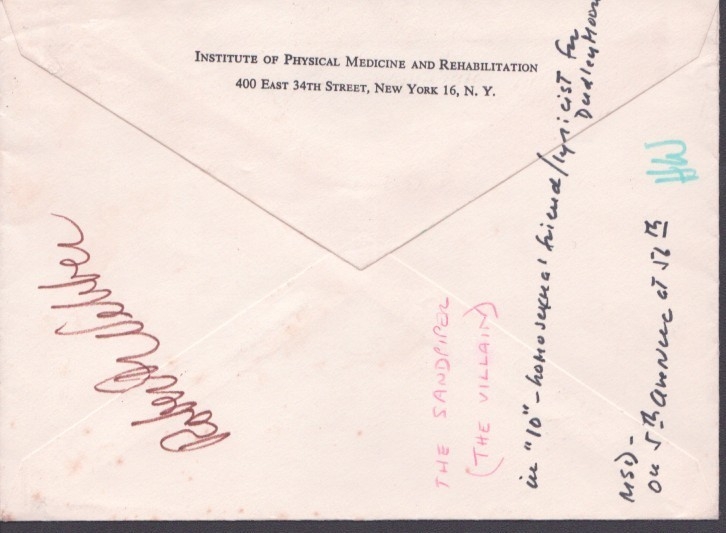 INSTITUTE OF PHYSICAL MEDICINE AND REHABILITATION
400 EAST 34TH STREET, NEW YORK 16, N. Y.
Robert Webber
THE SANDPIPER
(THE VILLAIN)
in "10" - homosexual friend/lyricist for
Dudley Moore
MSD -
on 5th avenue at 56th
HW